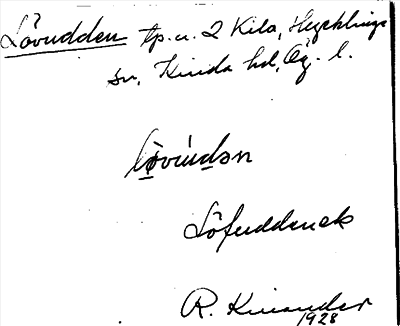 Lövudden tp. u. 2 Kila, Hycklinge
sn, Kinda hd, Ög. l.
lövúdən
Löfuddenek
R. Kinander
1928